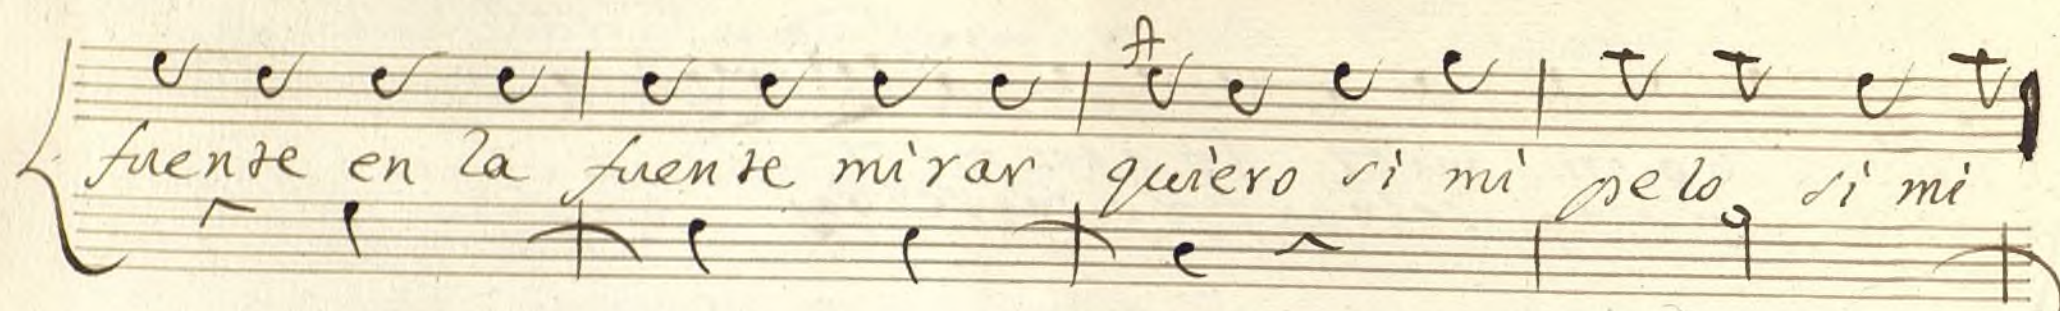 fuente en la fuente mirar quiero si mi pelo, si mi